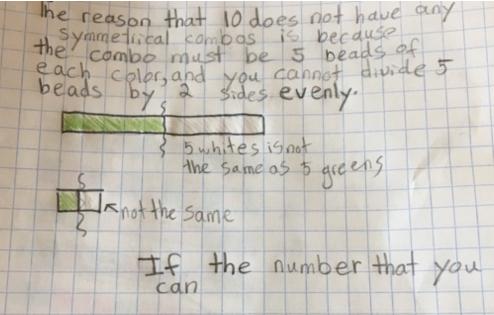 The reason that 10 does not have any
symmetrical combos is because
the combo must be 5 beads of
each color, and you cannot divide 5
beads by 2 sides evenly.
5 whites is not
the same as 5 greens
not the same
If the number that you
can